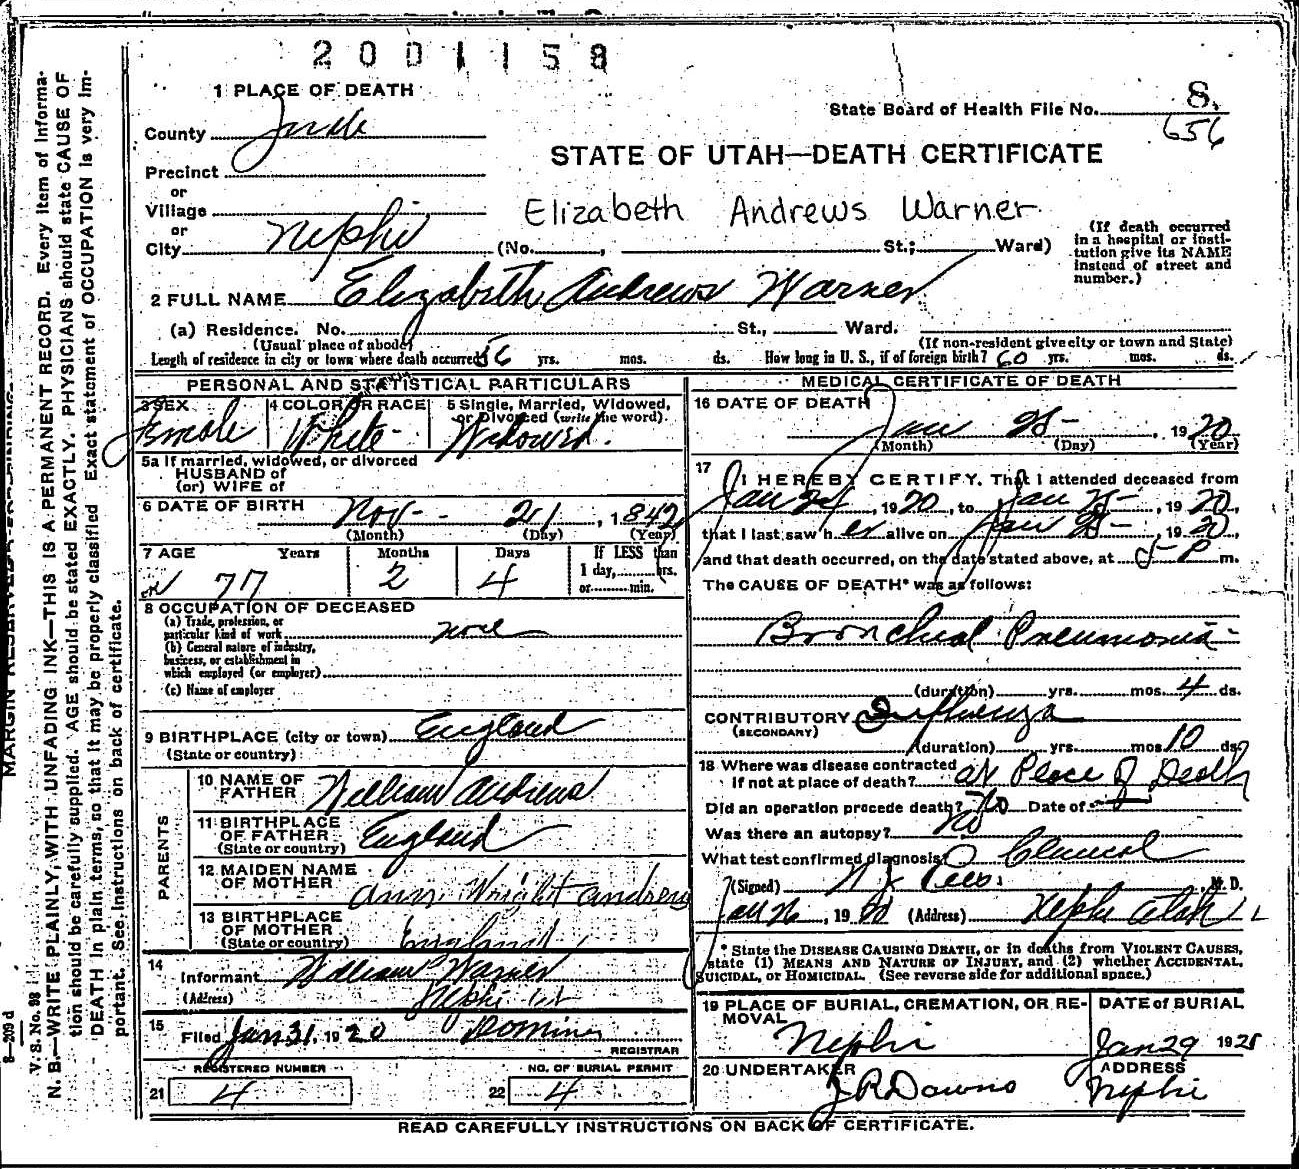 2001158
1 PLACE OF DEATH
State Board of Health File No. 8.
656
County Juab
STATE OF UTAH—DEATH CERTIFICATE
Precinct
or
Village
Elizabeth Andrews Warner
or
City Nephi (No. , St.; Ward)
(If death occurred in a hospital or insti-
tution give its NAME
instead of street and
number.)
2 FULL NAME Elizabeth Andrews Warner
(a) Residence. No. St., Ward.
(Usual place of abode) (If non-resident give city or town and State)
Length of residence in city or town where death occurred 56 yrs. mos. ds. How long in U. S., if of foreign birth? 60 yrs. mos. ds.
PERSONAL AND STATISTICAL PARTICULARS
3 SEX 4 COLOR OR RACE 5 Single, Married, Widowed,
or Divorced (write the word).
Female White Widowed.
5a If married, widowed, or divorced
HUSBAND of
(or) WIFE of
6 DATE OF BIRTH Nov 21, 1842
(Month) (Day) (Year)
7 AGE Years Months Days If LESS than
1 day, hrs.
or min.
77 2 4
8 OCCUPATION OF DECEASED
(a) Trade, profession, or
particular kind of work none
(b) General nature of industry,
business, or establishment in
which employed (or employer)
(c) Name of employer
9 BIRTHPLACE (city or town) England
(State or country)
PARENTS
10 NAME OF
FATHER William Andrews
11 BIRTHPLACE
OF FATHER
(State or country) England
12 MAIDEN NAME
OF MOTHER Ann Wright Andrews
13 BIRTHPLACE
OF MOTHER
(State or country) England
14
Informant William Warner
(Address) Nephi Ut
15
Filed Jan 31, 1920
REGISTRAR
REGISTERED NUMBER NO. OF BURIAL PERMIT
21 4 22 4
MEDICAL CERTIFICATE OF DEATH
16 DATE OF DEATH
Jan 25, 1920
(Month) (Day) (Year)
17
I HEREBY CERTIFY, That I attended deceased from
Jan 24, 1920, to Jan 25, 1920,
that I last saw her alive on Jan 25, 1920,
and that death occurred, on the date stated above, at 5 P m.
The CAUSE OF DEATH* was as follows:
Bronchial Pneumonia
(duration) yrs. mos. 4 ds.
CONTRIBUTORY Influenza
(SECONDARY)
(duration) yrs. mos. 10 ds.
18 Where was disease contracted
If not at place of death? at Place of Death
Did an operation precede death? No Date of
Was there an autopsy? No
What test confirmed diagnosis? Clinical
(Signed) , M. D.
Jan 26, 1920 (Address) Nephi Utah
* State the DISEASE CAUSING DEATH, or in deaths from VIOLENT CAUSES,
state (1) MEANS AND NATURE OF INJURY, and (2) whether ACCIDENTAL,
SUICIDAL, or HOMICIDAL. (See reverse side for additional space.)
19 PLACE OF BURIAL, CREMATION, OR RE-
MOVAL DATE of BURIAL
Nephi Jan 29 192
20 UNDERTAKER ADDRESS
J R Downs Nephi
READ CAREFULLY INSTRUCTIONS ON BACK OF CERTIFICATE.
MARGIN RESERVED FOR BINDING
8—209 d
V. S. No. 98
N. B.—WRITE PLAINLY, WITH UNFADING INK—THIS IS A PERMANENT RECORD. Every item of informa-
tion should be carefully supplied. AGE should be stated EXACTLY. PHYSICIANS should state CAUSE OF
DEATH in plain terms, so that it may be properly classified. Exact statement of OCCUPATION is very im-
portant. See instructions on back of certificate.